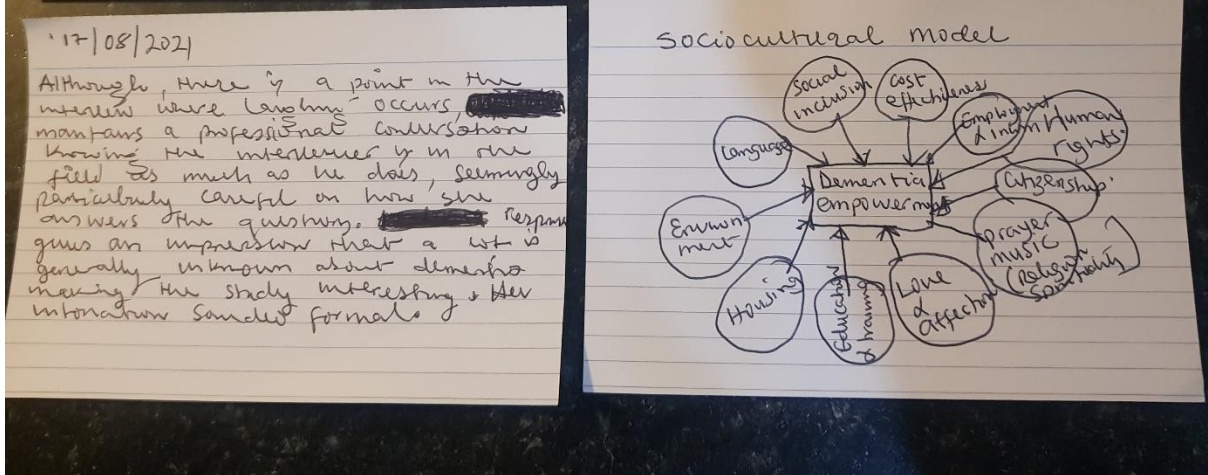 17/08/2021
Although, there is a point in the
interview where laughing occurs,
maintains a professional conversation
Knowing the interviewer is in the
field as much as he does, seemingly
particularly careful on how she
answers the question. Response
gives an impression that a lot is
generally unknown about dementia
making the study interesting. Her
intonation sounded formal.
Sociocultural model
Social
inclusion
Cost
effectiveness
Employment
&
Human
rights.
Language
Dementia
empowerment
Citizenship.
Environ
ment
prayer
music
(religion
spirituality)
Housing
Education
& training
Love
& affection